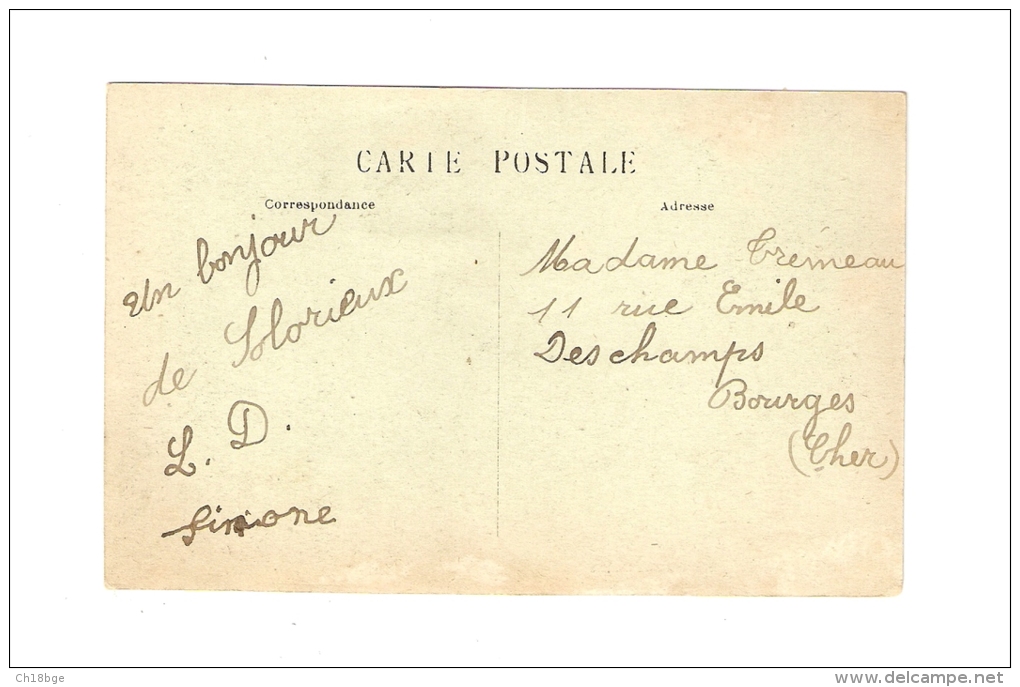 CARTE POSTALE
Correspondance
Un bonjour
de Florieux
L. D.
Simone
Adresse
Madame Trémeau
11 rue Emile
Deschamps
Bourges
(Cher)
Ch18bge
www.delcampe.net